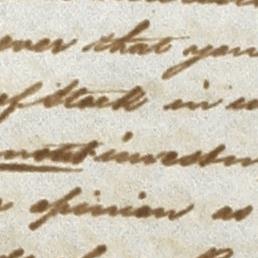 ever that you
of Stock in
investm
opinion as